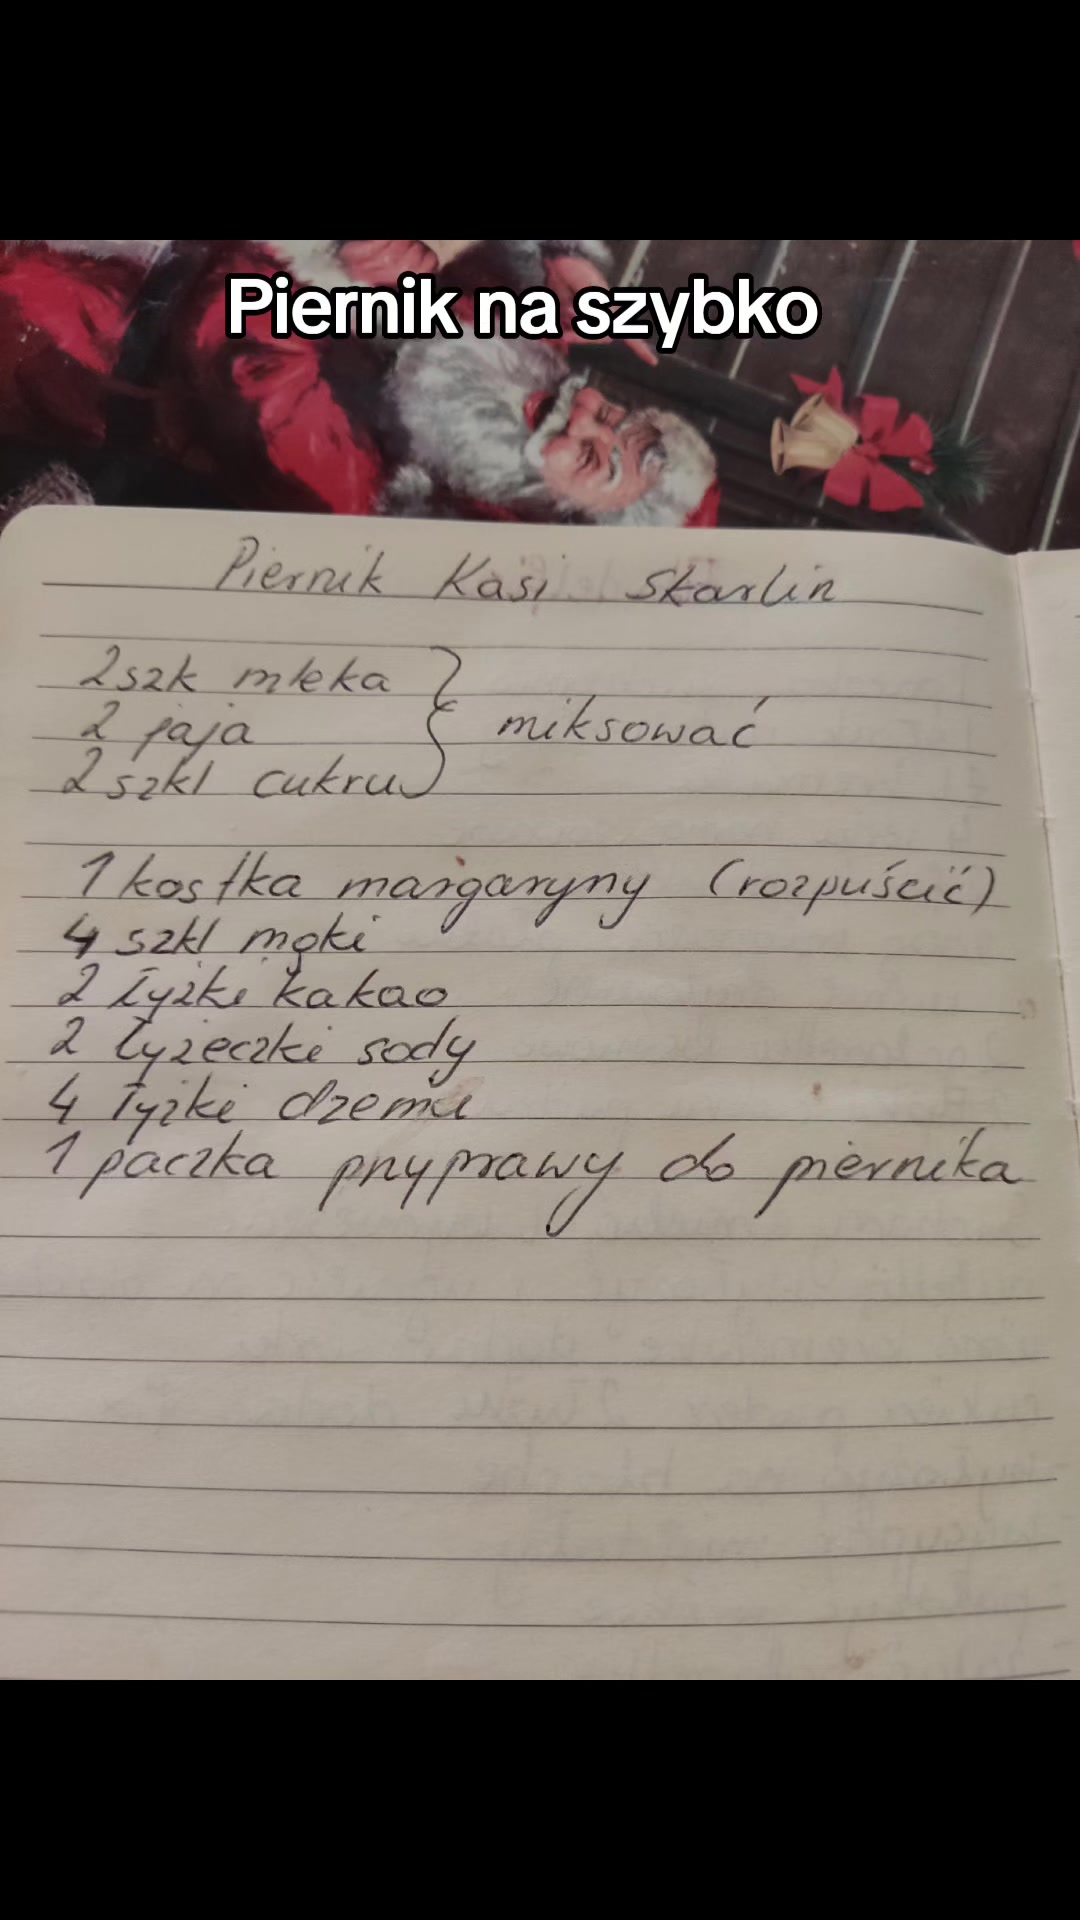 Piernik na szybko
Piernik Kasi Skarlin
2szk mleka
2 jaja
2szkl cukru
miksować
1 kostka margaryny (rozpuścić)
4 szkl mąki
2 łyżki kakao
2 łyżeczki sody
4 łyżki dżemu
1 paczka przyprawy do piernika